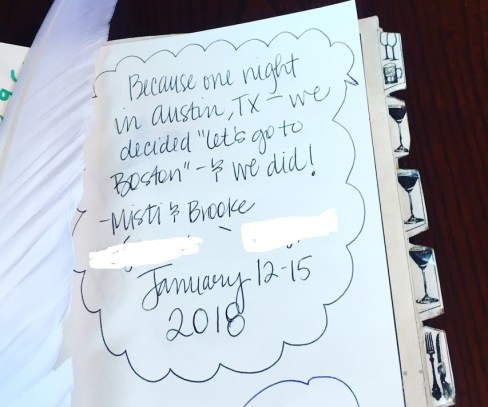 Because one night
in austin, TX - we
decided "let's go to
Boston" - & we did!
- Misti & Brooke
January 12-15
2018